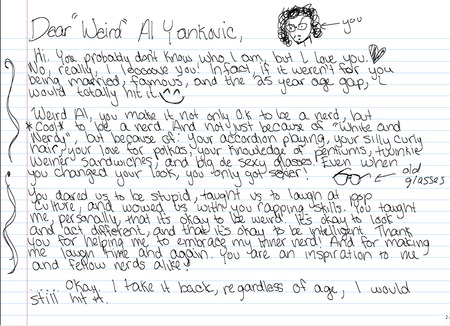 Dear "Weird" Al Yankovic,
← you
Hi. You probably don't know who I am, but I love you.
No, really, I loooove you! Infact, if it weren't for you
being married, famous, and the 25 year age gap, I
would totally hit it.
Weird Al, you make it not only OK to be a nerd, but
*cool* to be a nerd. And not just because of "White and
Nerdy", but because of: Your accordion playing, your silly curly
hair, your love for polkas, your knowledge of Pentiums, twinkie
weiner sandwiches, and big ole sexy glasses. Even when
you changed your look, you only got sexier!
← old
glasses
You dared us to be stupid, taught us to laugh at pop
culture, and wowed us with you rapping skills. You taught
me, personally, that it's okay to be weird. It's okay to look
and act different, and that it's okay to be intelligent. Thank
you for helping me to embrace my inner nerd! And for making
me laugh time and again. You are an inspiration to me
and fellow nerds alike!
..... Okay. I take it back, regardless of age, I would
still hit it.